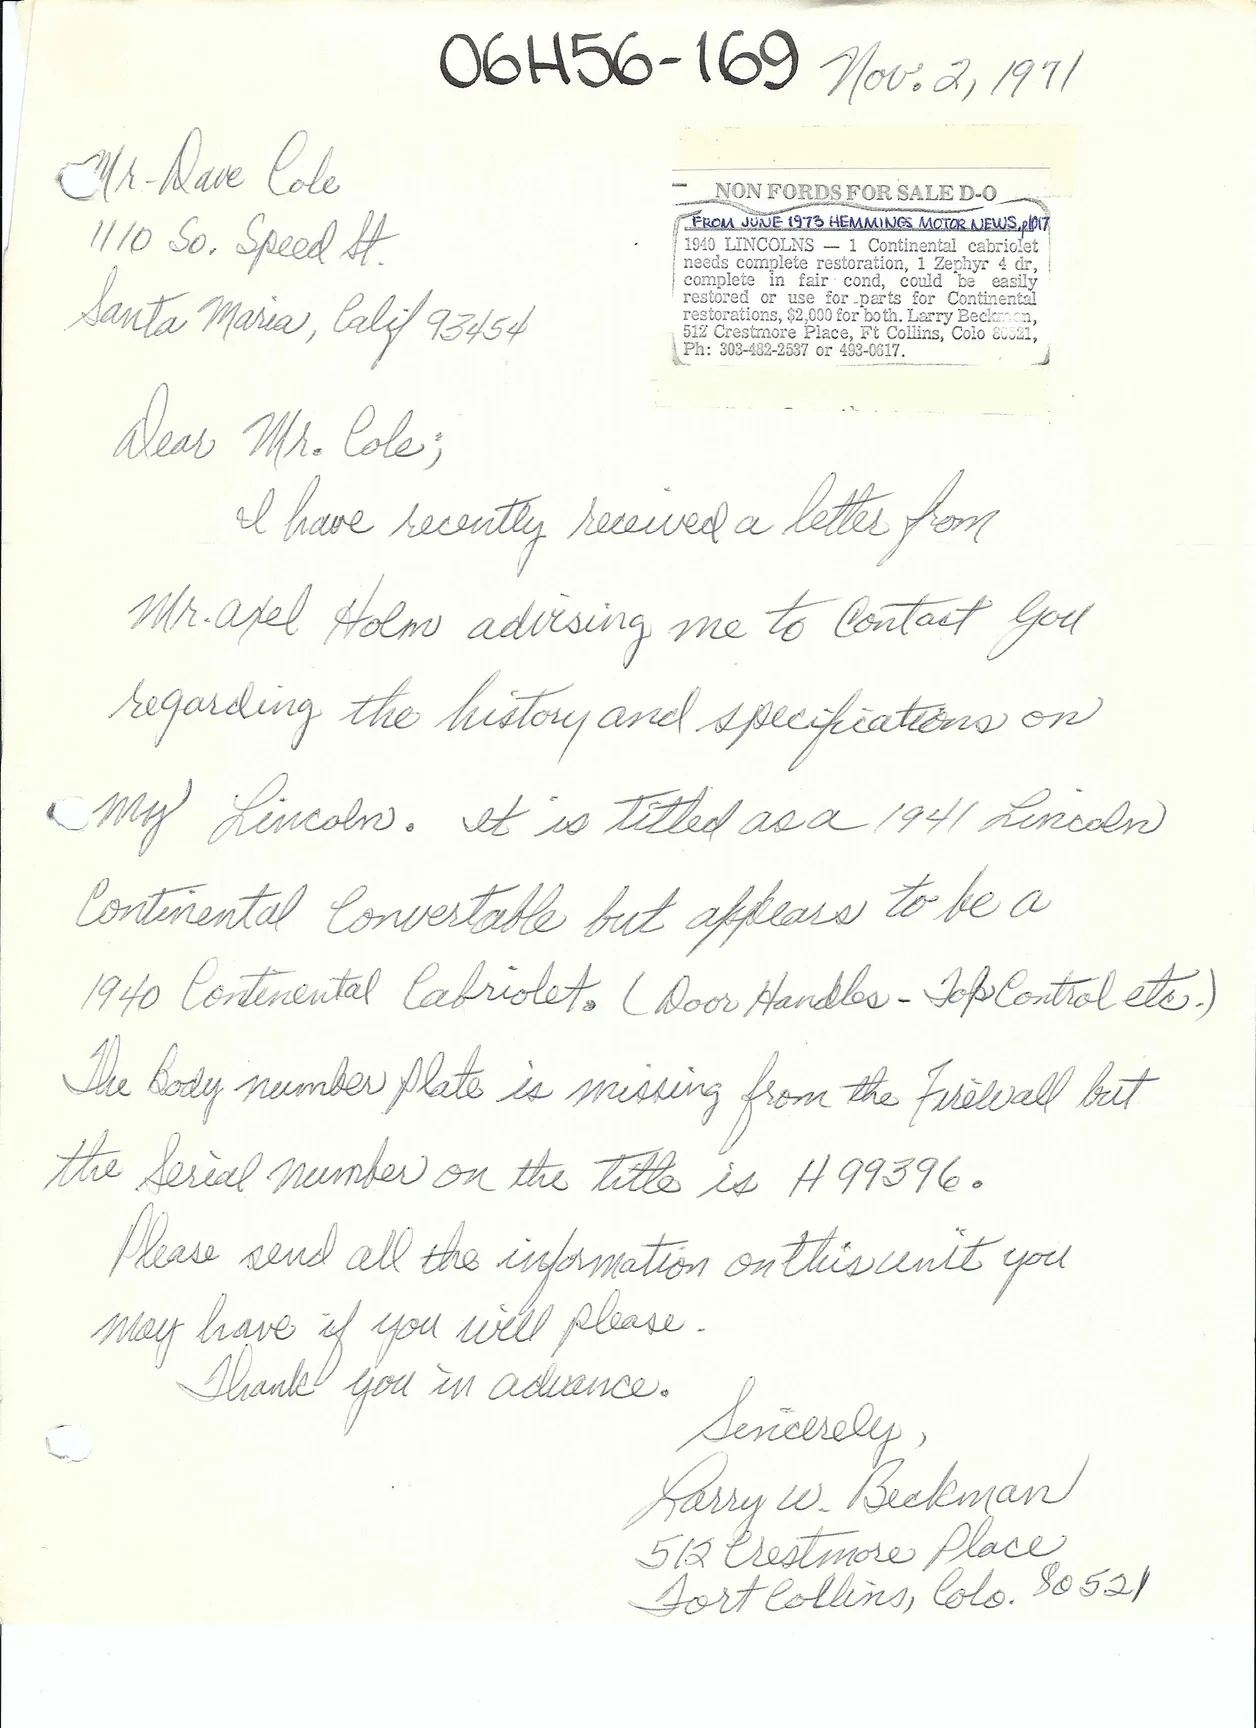 06H56-169 Nov. 2, 1971
Mr. Dave Cole
1110 So. Speed St.
Santa Maria, Calif 93454
NON FORDS FOR SALE D-O
FROM JUNE 1973 HEMMINGS MOTOR NEWS, p1017
1940 LINCOLNS — 1 Continental cabriolet
needs complete restoration, 1 Zephyr 4 dr,
complete in fair cond, could be easily
restored or use for parts for Continental
restorations, $2,000 for both. Larry Beckman,
512 Crestmore Place, Ft Collins, Colo 80521,
Ph: 303-482-2537 or 493-0617.
Dear Mr. Cole;
I have recently received a letter from
Mr. Axel Holm advising me to Contact you
regarding the history and specifications on
my Lincoln. It is titled as a 1941 Lincoln
Continental Convertable but appears to be a
1940 Continental Cabriolet. (Door Handles - Top Control etc.)
The Body number plate is missing from the Firewall but
the Serial number on the title is H99396.
Please send all the information on this unit you
may have if you will please.
Thank you in advance.
Sincerely,
Larry W. Beckman
512 Crestmore Place
Fort Collins, Colo. 80521